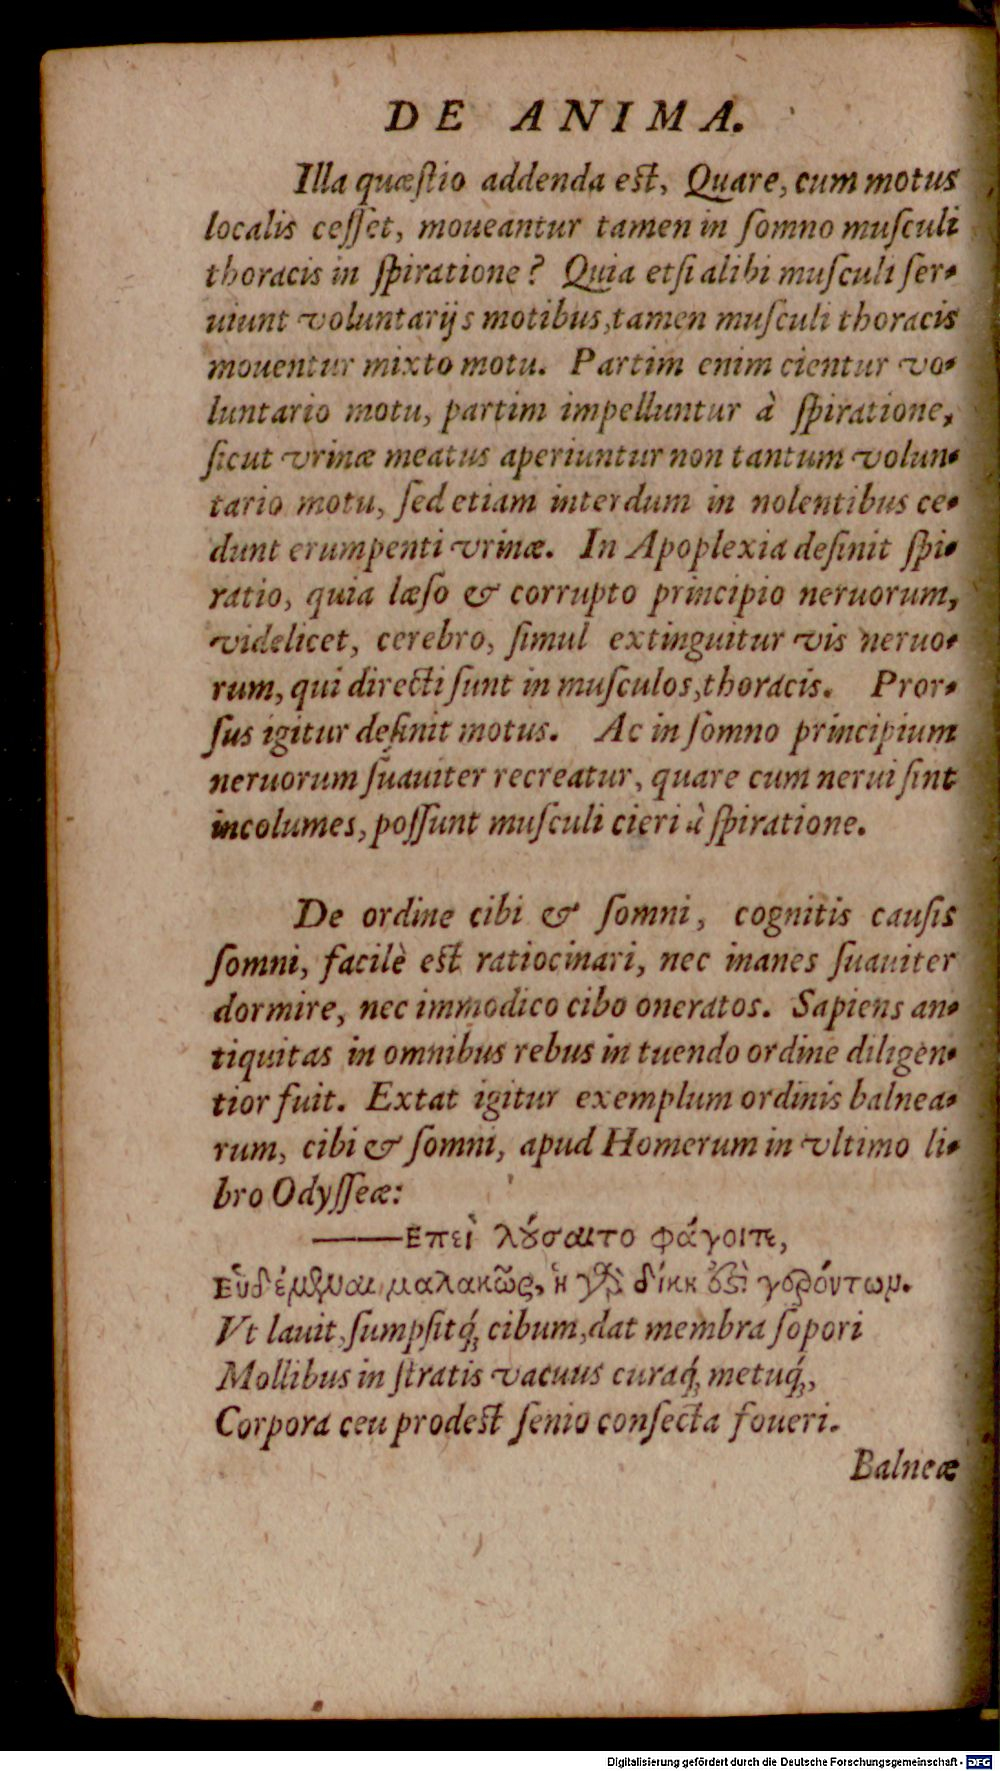 DE ANIMA.
Illa quæſtio addenda est, Quare, cum motus
localis ceſſet, moueantur tamen in ſomno muſculi
thoracis in ſpiratione? Quia etſi alibi muſculi ſer-
uiunt voluntarijs motibus, tamen muſculi thoracis
mouentur mixto motu. Partim enim cientur vo-
luntario motu, partim impelluntur à ſpiratione,
ſicut vrinæ meatus aperiuntur non tantum volun-
tario motu, ſed etiam interdum in nolentibus ce-
dunt erumpenti vrinæ. In Apoplexia deſinit ſpi-
ratio, quia læſo & corrupto principio neruorum,
videlicet, cerebro, ſimul extinguitur vis neruo-
rum, qui directi ſunt in muſculos, thoracis. Pror-
ſus igitur deſinit motus. Ac in ſomno principium
neruorum ſuauiter recreatur, quare cum nerui ſint
incolumes, poſſunt muſculi cieri à ſpiratione.
De ordine cibi & ſomni, cognitis cauſis
ſomni, facilè est ratiocinari, nec inanes ſuauiter
dormire, nec immodico cibo oneratos. Sapiens an-
tiquitas in omnibus rebus in tuendo ordine diligen-
tior fuit. Extat igitur exemplum ordinis balnea-
rum, cibi & ſomni, apud Homerum in vltimo li-
bro Odyſſeæ:
——Επεὶ λούσαιτο φάγοιτε,
Εὑδέμεναι μαλακῶς, ἡ γὰρ δίκη ὅξὶ γερόντωμ.
Vt lauit, ſumpſitq́; cibum, dat membra ſopori
Mollibus in ſtratis vacuus curaq́; metuq́;,
Corpora ceu prodest ſenio conſecta foueri.
Balneæ
Digitalisierung gefördert durch die Deutsche Forschungsgemeinschaft - DFG